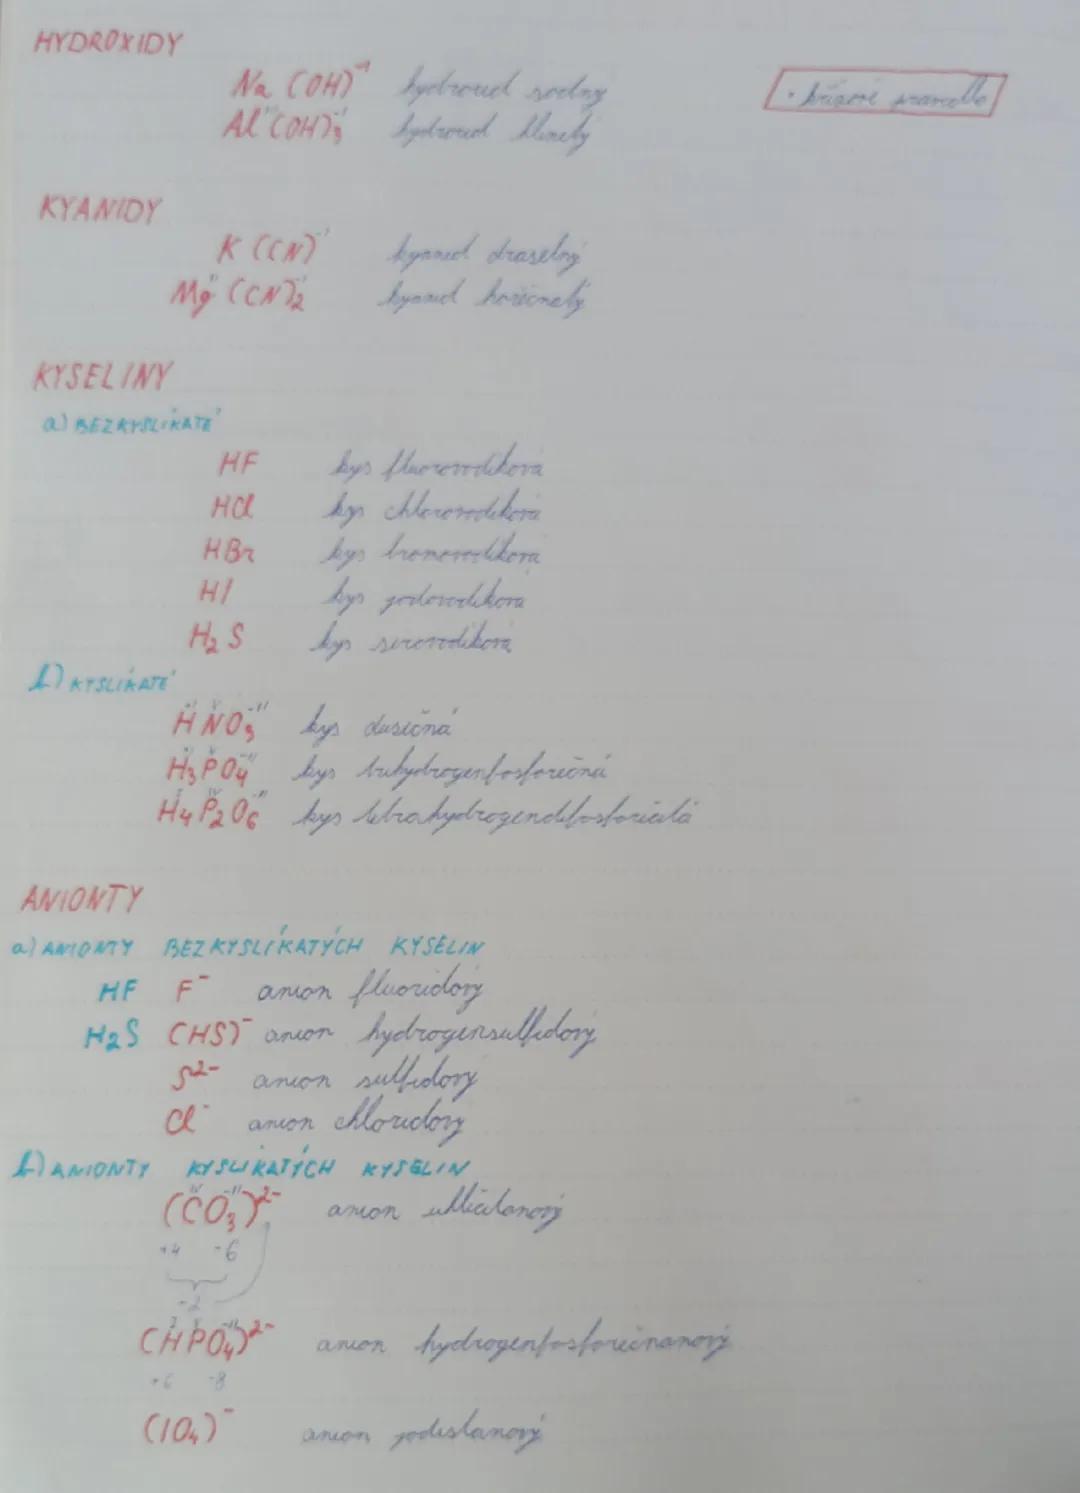 HYDROXIDY
Na (OH)⁻ᴵ hydroxid sodný
• křížové pravidlo
Alᴵᴵᴵ(OH)₃⁻ᴵ hydroxid hlinitý
KYANIDY
K (CN)⁻ᴵ kyanid draselný
Mgᴵᴵ (CN)₂⁻ᴵ kyanid hořečnatý
KYSELINY
a) BEZKYSLÍKATÉ
HF kys fluorovodíková
HCl kys chlorovodíková
HBr kys bromovodíková
HI kys jodovodíková
H₂S kys sirovodíková
b) KYSLÍKATÉ
HᴵNⱽO₃⁻ᴵᴵ kys dusičná
H₃ᴵPⱽO₄⁻ᴵᴵ kys trihydrogenfosforečná
H₄ᴵP₂ᴵⱽO₆⁻ᴵᴵ kys tetrahydrogendifosforičitá
ANIONTY
a) ANIONTY BEZKYSLÍKATÝCH KYSELIN
HF F⁻ anion fluoridový
H₂S (HS)⁻ anion hydrogensulfidový
S²⁻ anion sulfidový
Cl⁻ anion chloridový
b) ANIONTY KYSLIKATÝCH KYSELIN
(CᴵⱽO₃⁻ᴵᴵ)²⁻ anion uhličitanový
+4 -6
-2
(HᴵPⱽO₄⁻ᴵᴵ)²⁻ anion hydrogenfosforečnanový
+6 -8
(IO₄)⁻ anion jodistanový